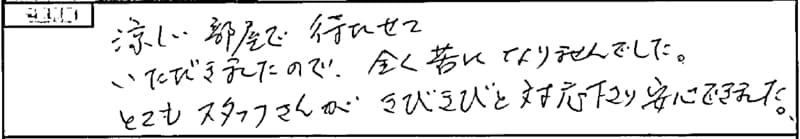 涼しい部屋で待たせて
いただきましたので、全く苦になりませんでした。
とてもスタッフさんがきびきびと対応下さり安心できました。